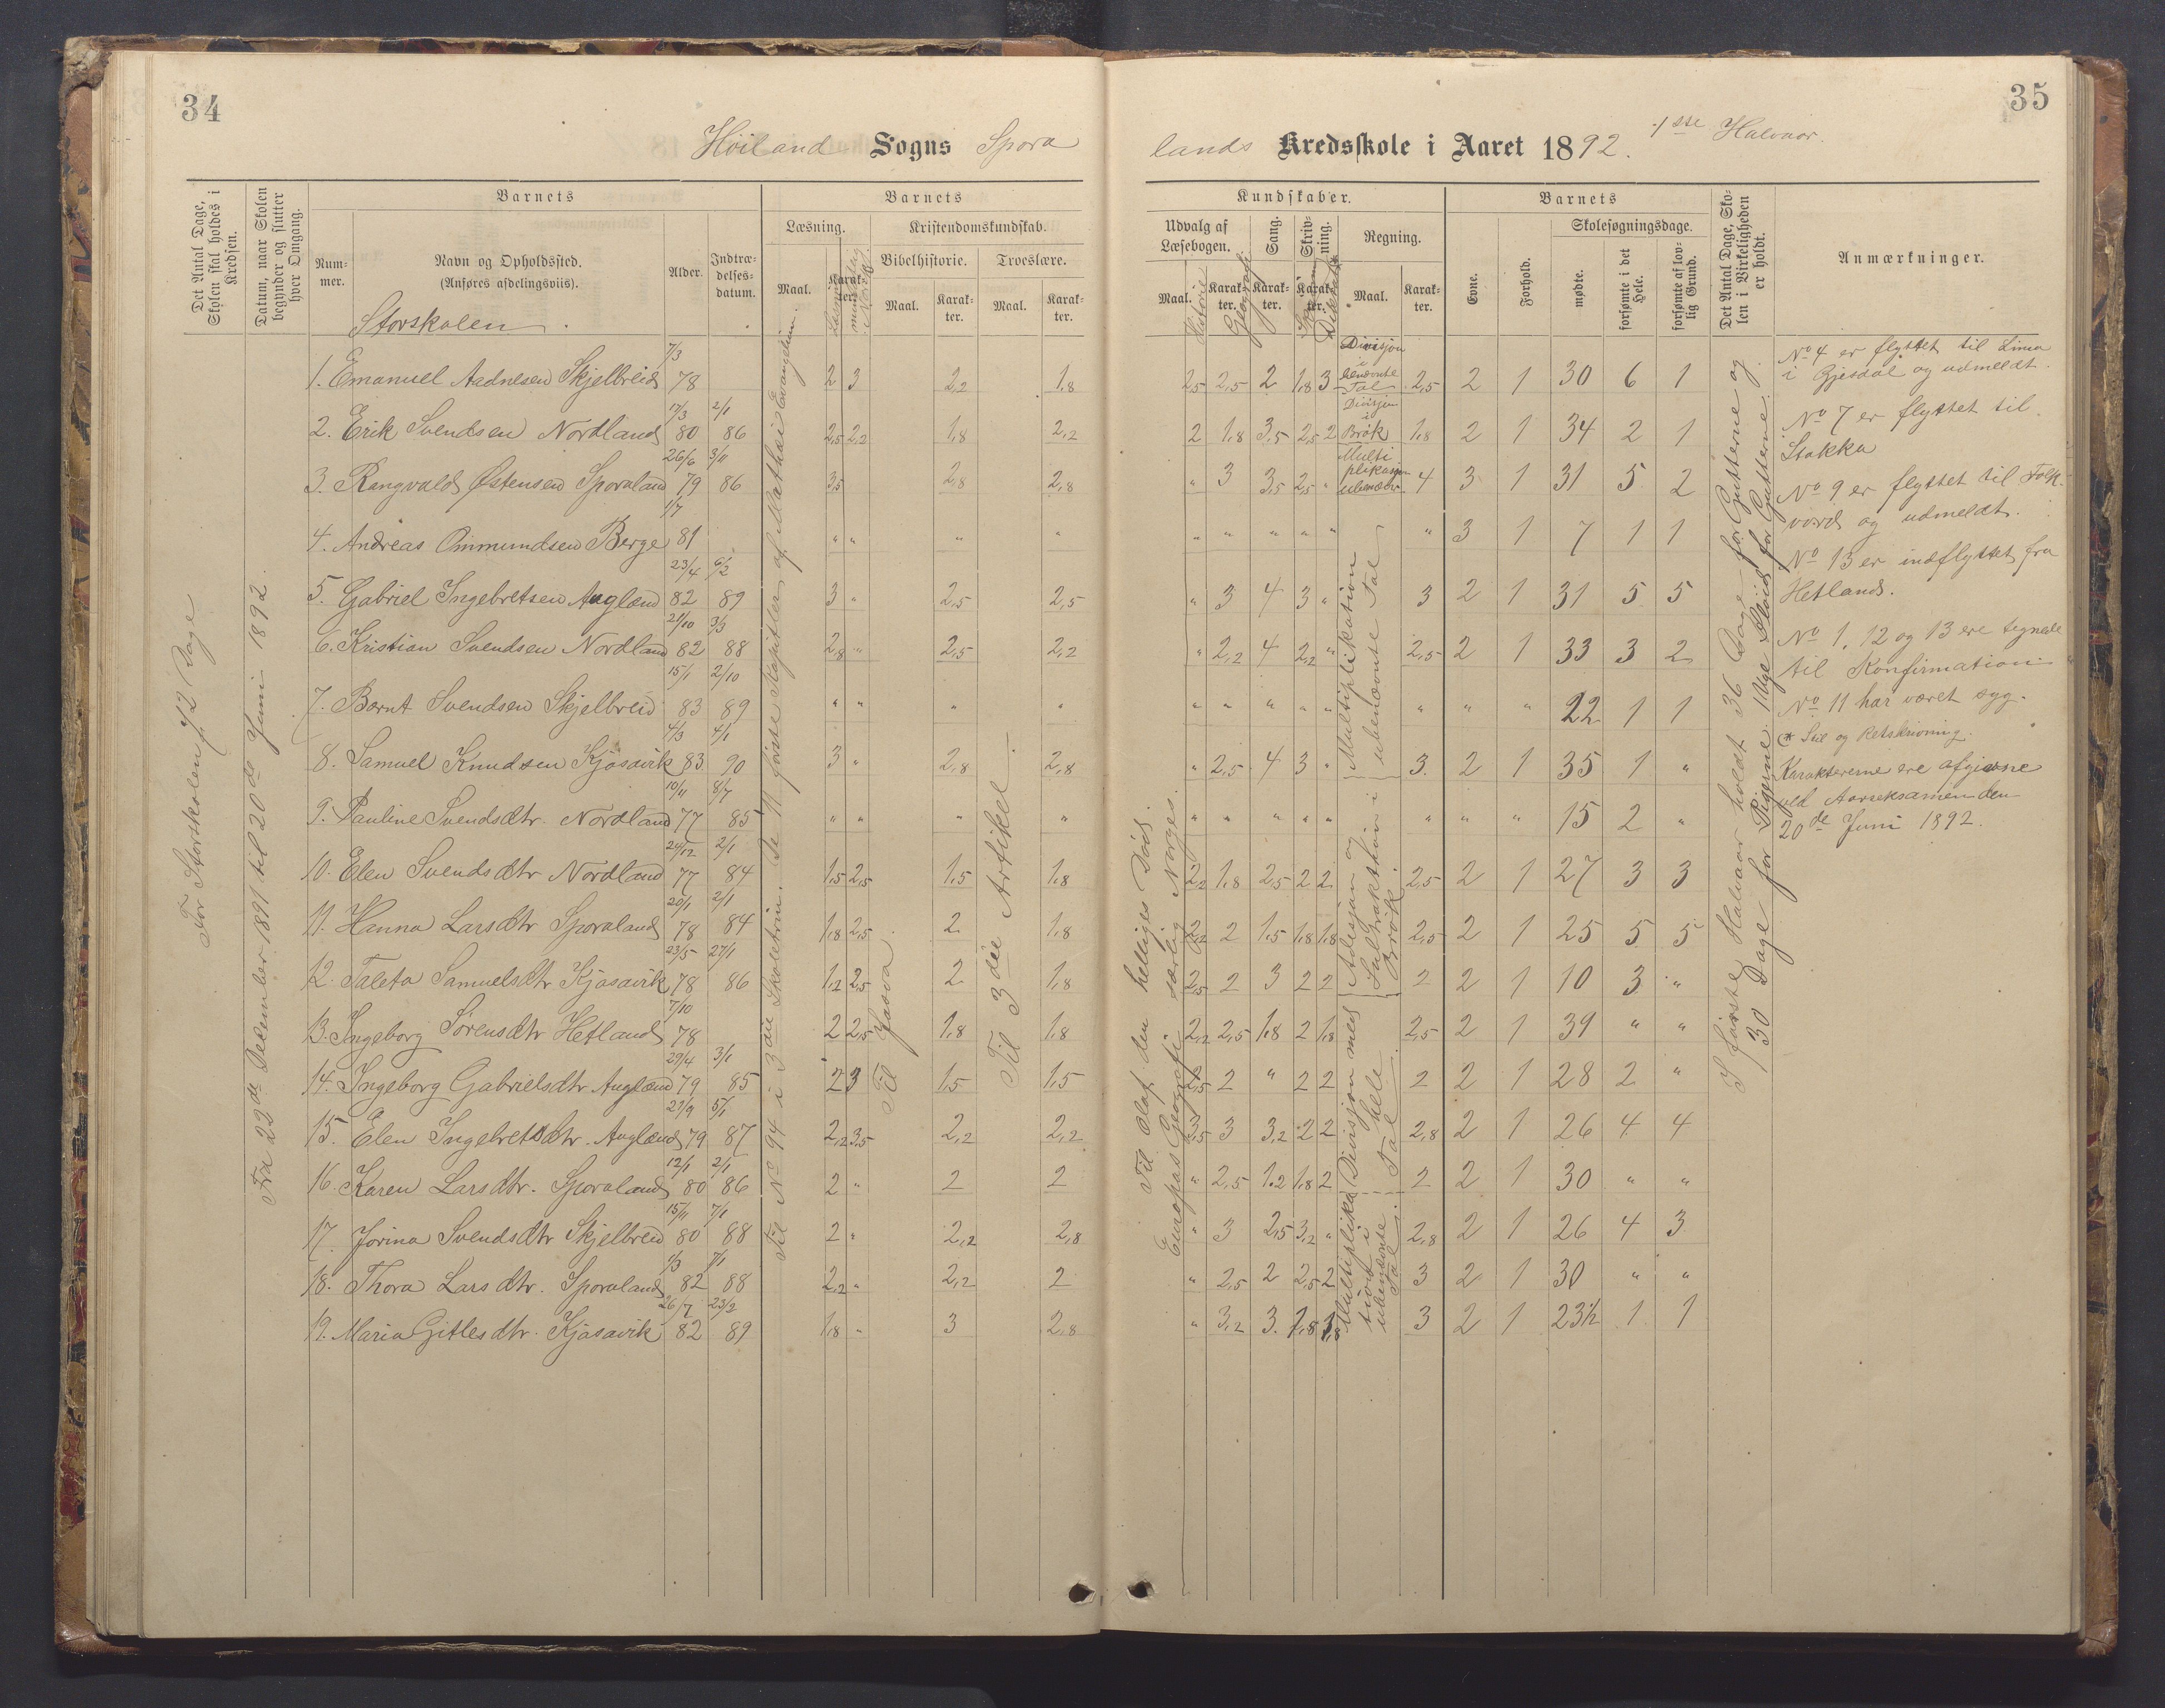 34
Høiland Sogns Spora
Det Antal Dage, Skolen skal holdes i Kredsen.
Datum, naar Skolen begynder og slutter hver Omgang.
Barnets
Barnets
Læsning.
Kristendomskundskab.
Num-
mer.
Navn og Opholdssted.
(Anføres afdelingsviis).
Alder.
Indtræ-
delses-
datum.
Maal.
Karak-
ter.
Bibelhistorie.
Troeslære.
Maal.
Karak-
ter.
Maal.
Karak-
ter.
Storskolen
For Storskolen 72 Dage
Fra 22de December 1891 til 20de Juni 1892.
Til No 94 i 3die Skoletrin. De 11 første Kapitler af Mathæi Evangelium.
Til Josva
Til 3die Artikel
1. Emanuel Aadnesen Skjelbreid 7/3 78 2 3 2,2 1,8
2. Erik Svendsen Nordland 17/3 80 2/1 86 2,5 2,2 1,8 2,2
3. Rangvald Østensen Sporaland 26/6 79 3/11 86 3,5 2,8 2,8
4. Andreas Ommundsen Berge 1/7 81 " " " "
5. Gabriel Ingebretsen Augland 23/4 82 6/2 89 3 " 2,5 2,5
6. Kristian Svendsen Nordland 21/10 82 3/3 88 2,8 " 2,5 2,2
7. Bernt Svendsen Skjelbreid 15/1 83 2/10 89 " " " "
8. Samuel Knudsen Kjøsavik 4/3 83 4/1 90 3 " 2,8 2,8
9. Pauline Svendsdtr. Nordland 10/11 77 8/7 85 " " " "
10. Elen Svendsdtr Nordland 24/12 77 2/1 84 1,5 2,5 1,5 1,8
11. Hanna Larsdtr Sporaland 20/1 78 2/1 84 1,8 2,5 2 1,8
12. Taleta Samuelsdtr Kjøsavik 23/5 78 27/1 86 1,2 2,5 2 1,8
13. Ingeborg Sørensdtr Hetland 7/10 78 2 2,5 1,8 1,8
14. Ingeborg Gabrielsdtr Augland 29/4 79 3/1 85 2 3 1,5 1,5
15. Elen Ingebretsdtr. Augland 21/9 79 5/1 87 2,2 3,5 2,2 2,2
16. Karen Larsdtr. Sporaland 12/1 80 2/1 86 2 " 2 2
17. Jorina Svendsdtr Skjelbreid 15/11 80 7/1 88 2 " 2,2 2,8
18. Thora Larsdtr. Sporaland 1/3 82 7/1 88 2,2 " 2,2 2
19. Maria Gitlesdtr. Kjøsavik 26/7 82 23/2 89 1,8 " 3 2,8
35
lands Kredsskole i Aaret 1892. 1ste Halvaar
Kundskaber.
Barnets
Udvalg af
Læsebogen.
Sang.
Skriv-
ning.
Regning.
Skolesøgningsdage.
Det Antal Dage, Sko-
len i Virkeligheden
er holdt.
Anmærkninger.
Maal.
Historie
Karak-
ter.
Geografi
Karak-
ter.
Karak-
ter.
Maal.
Karak-
ter.
Evne.
Forhold.
mødte.
forsømte i det
Hele.
forsømte af lov-
lig Grund.
Til Olaf den helliges Død.
Europas Geografi særlig Norges.
Divisjon
i
benævnte
Tal
Divisjon
i
Brøk
Multi
plikasjon
ubenævn
Multiplikation i ubenævnte Tal
Addisjon og Subtraktion i Brøk.
Divisjon med hele Tal
Multiplika tion i ubenævnte Tal.
2,5 2,5 2 1,8 3 2,5 2 1 30 6 1
2 1,8 3,5 2,5 2 1,8 2 1 34 2 1
" 3 3,5 2,5 " 4 3 1 31 5 2
" " " " " " 3 1 7 1 1
" 3 4 3 " 3 2 1 31 5 5
" 2,2 4 2,2 " 2,5 2 1 33 3 2
" " " " " " " " 22 1 1
" 2,5 4 3 " 3 2 1 35 1 "
" " " " " " " " 15 2 "
2,2 1,8 2,5 2 2 2,5 2 1 27 3 3
2,2 2 1,5 1,8 1,8 2,5 2 1 25 5 5
2,5 2 3 2 2 2 2 1 10 3 "
2,2 2,5 1,8 2 1,8 2,5 2 1 39 " "
2,5 2 " 2 2 2 2 1 28 2 "
3,5 3 3,2 2 2 2,8 2 1 26 4 4
" 2,5 1,2 1,8 2 2 2 1 30 " "
" 3 2,5 3,2 " 2,8 2 1 26 4 3
" 2,5 2 2,5 2 3 2 1 30 " "
" 3,2 3 1,8 1,8 3 2 1 23½ 1 1
I første Halvaar holdt 36 Dage for Gutterne og
30 Dage for Pigerne. 1 Uge Sløid for Gutterne.
No 4 er flyttet til Lima
i Gjesdal og udmeldt.
No 7 er flyttet til
Stokka
No 9 er flyttet til Folk-
vord og udmeldt.
No 13 er indflyttet fra
Hetland.
No 1, 12 og 13 ere tegnede
til Konfirmation
No 11 har været syg.
(* Stil og Retskrivning.
Karaktererne ere afgivne
ved Aarseksamen den
20de Juni 1892.